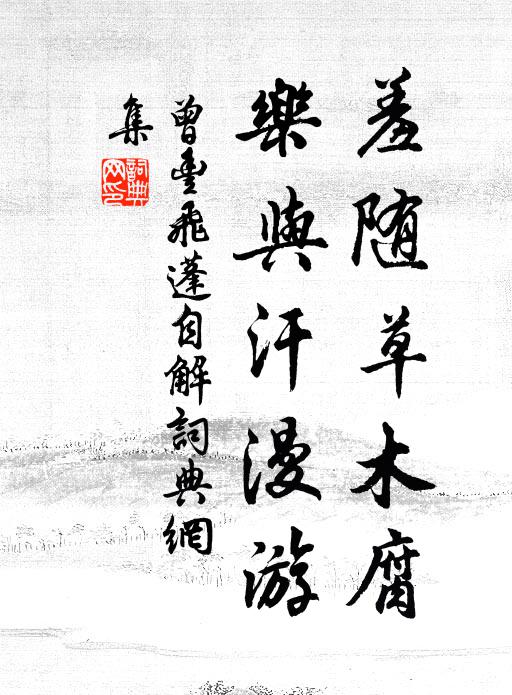 羞随草木腐
樂與汗漫游
曾豐飛蓬自解詞典網
集
詞典網印